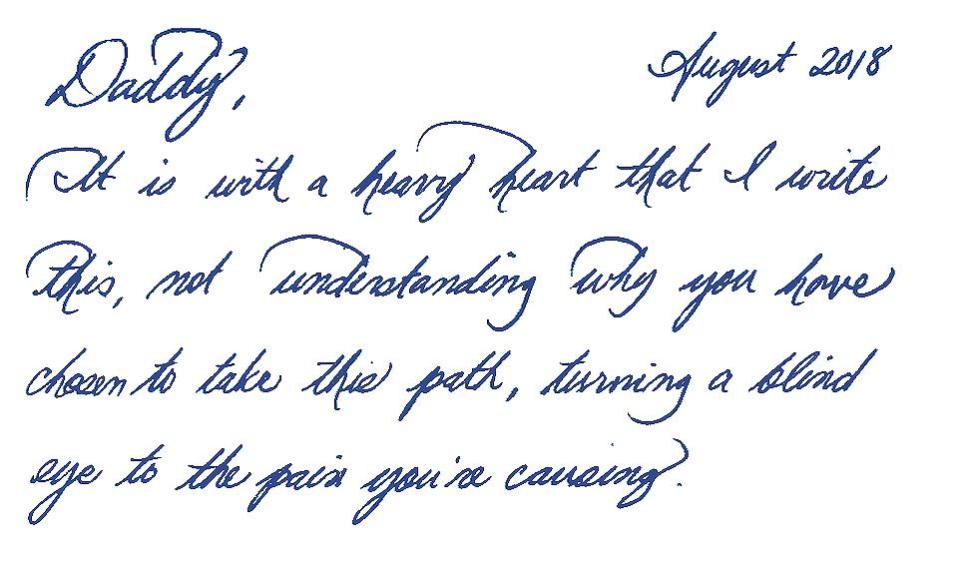 Daddy, August 2018
It is with a heavy heart that I write
this, not understanding why you have
chosen to take this path, turning a blind
eye to the pain you're causing.